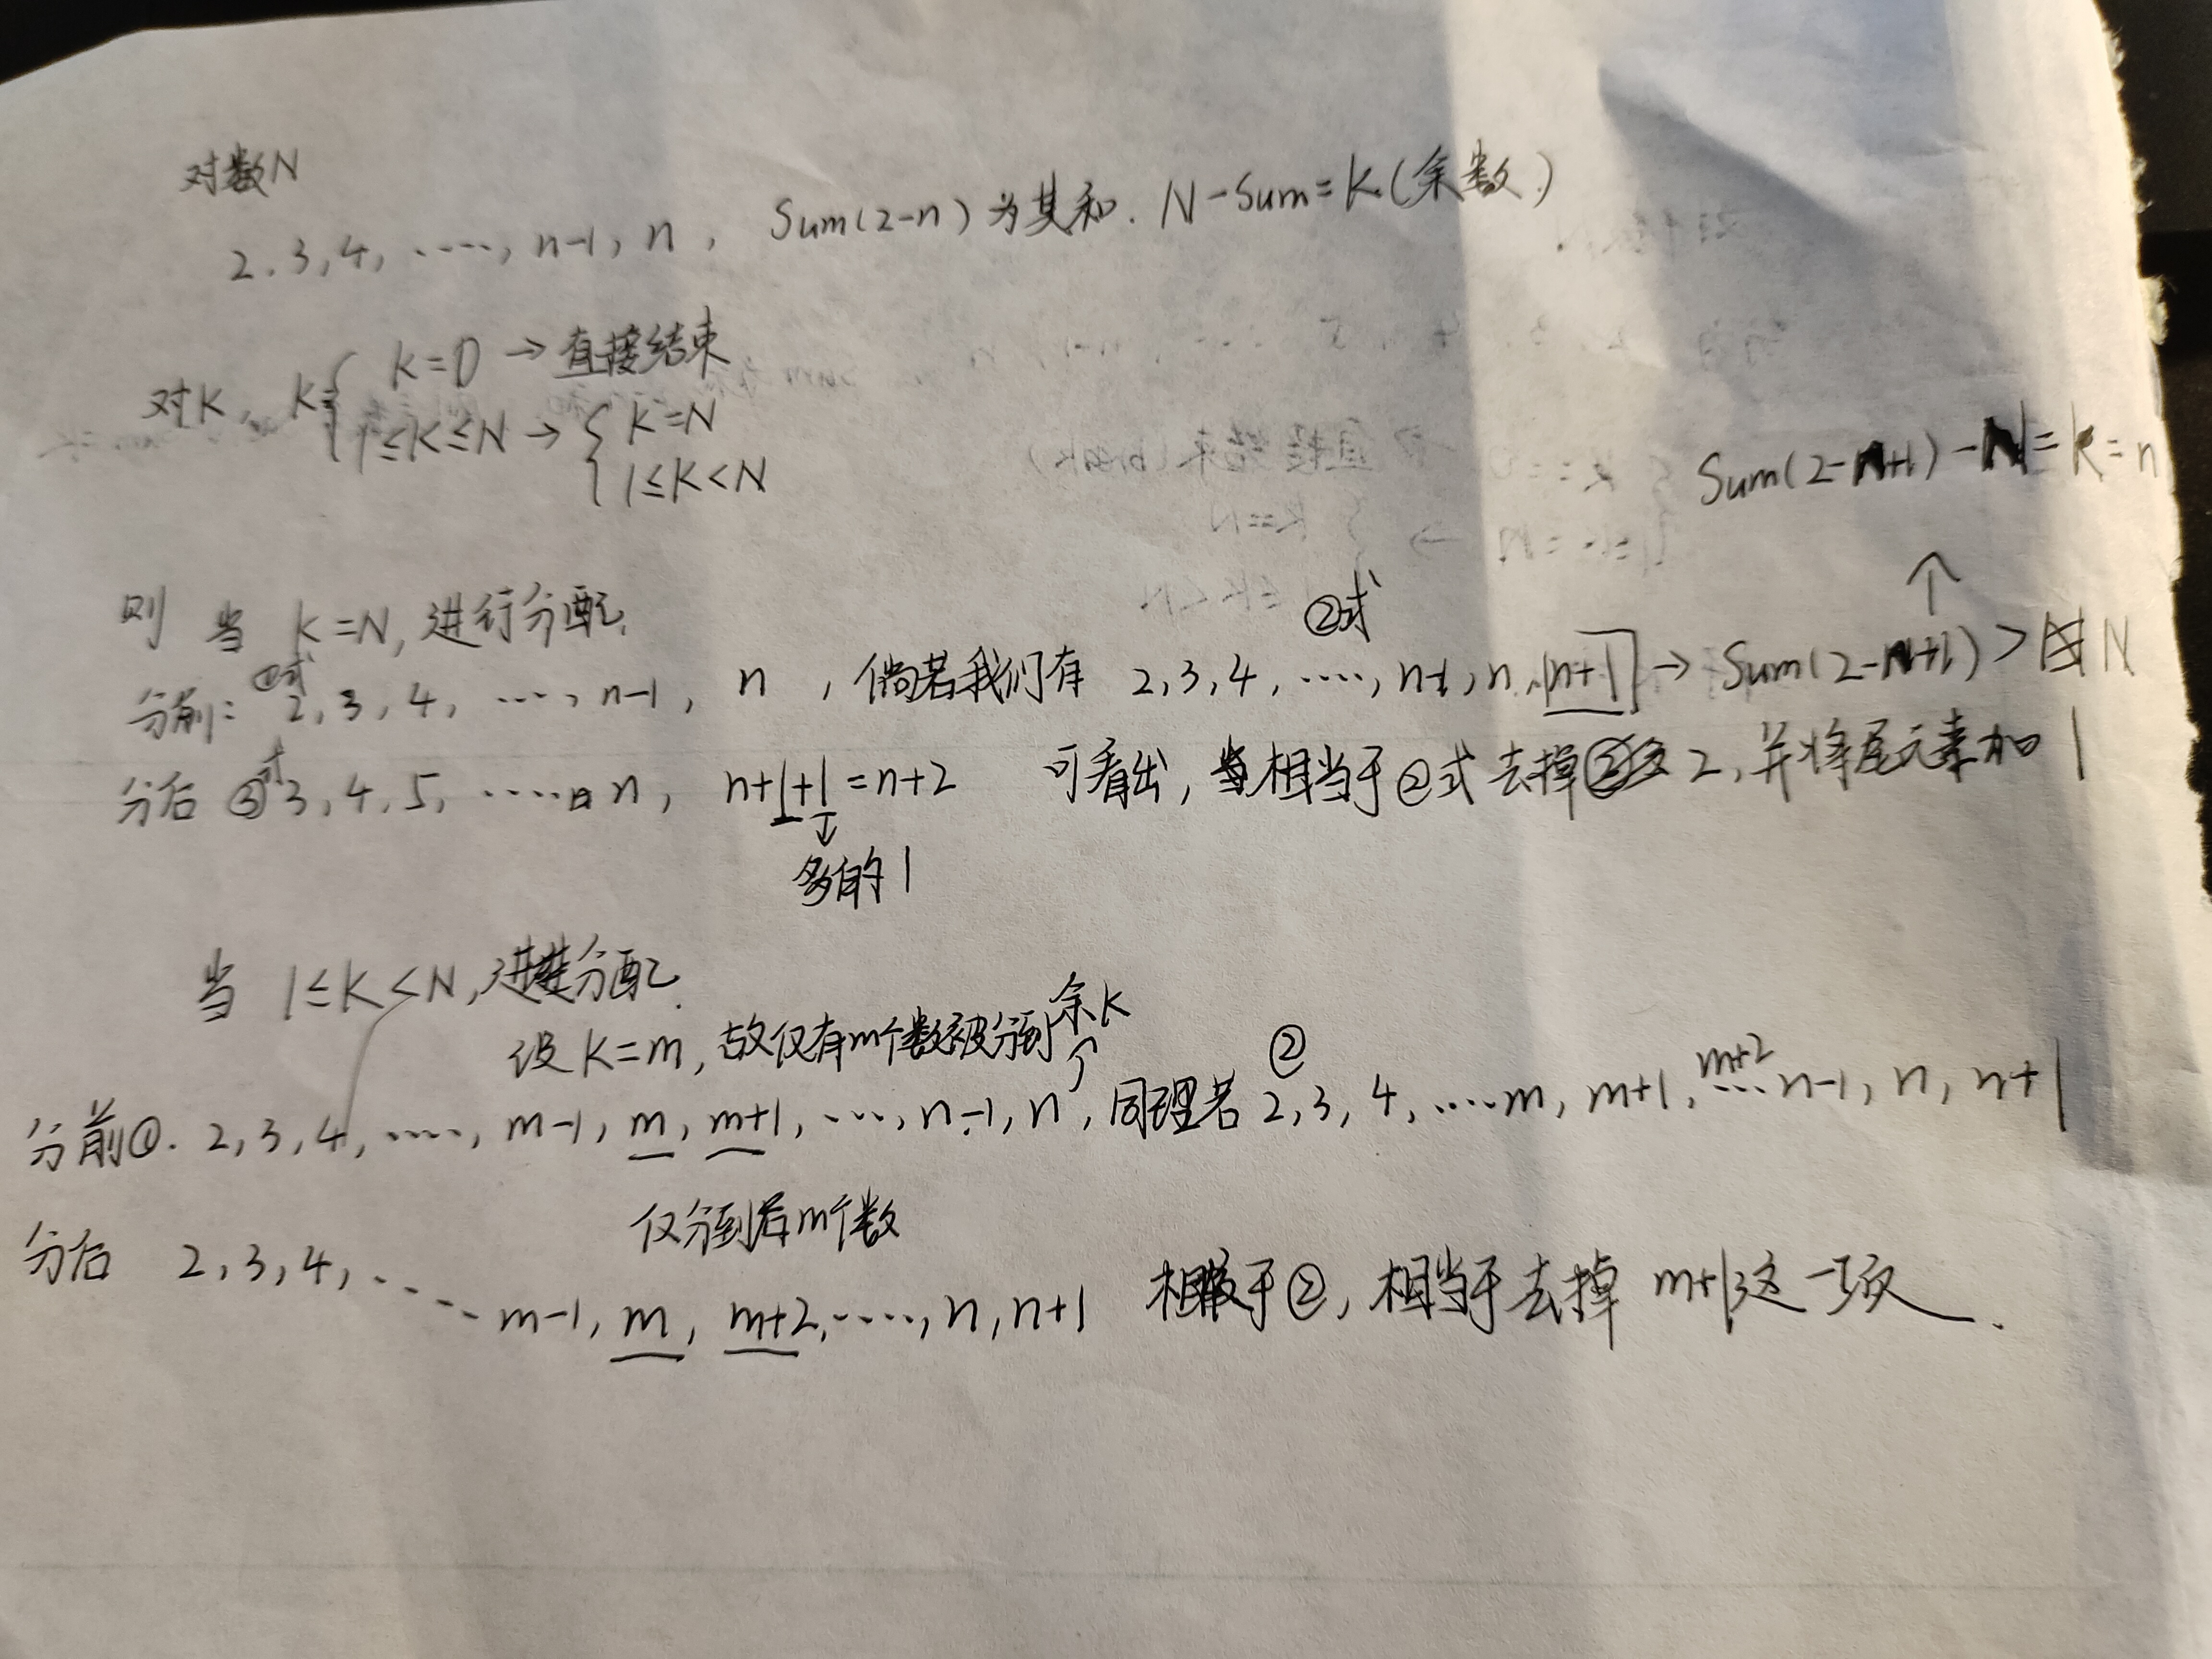 对数N
2,3,4,……,n-1,n, Sum(2-n)为其和. N-Sum=K(余数)
对K, K={ K=0 → 直接结束
1≤K≤N → { K=N
1≤K<N
Sum(2-n+1)-N=k=n
↑
则 当 K=N,进行分配.
②式
分前: ①式 2,3,4,……,n-1, n ,倘若我们有 2,3,4,……,n-1,n,n+1 → Sum(2-n+1)>N
分后 ③式 3,4,5,……n, n+1+1=n+2 可看出,相当于②式去掉2,并将尾元素加1
↓
多的1
当 1≤K<N,进行分配.
设K=m,故仅有m个数被分到余K
②
分前①. 2,3,4,……,m-1,m,m+1,…,n-1,n,同理若 2,3,4,……m,m+1,m+2…n-1,n,n+1
仅分到后m个数
分后 2,3,4,……m-1,m,m+2,……,n,n+1 相较于②,相当于去掉 m+1这一项.